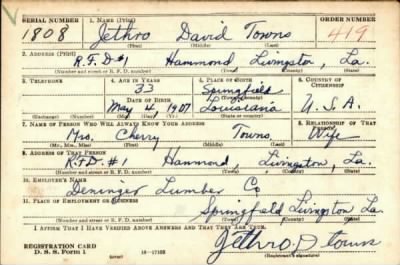 SERIAL NUMBER 1. NAME (Print) ORDER NUMBER
1808 Jethro David Towns 419
(First) (Middle) (Last)
2. ADDRESS (Print)
R.F.D #1 Hammond Livingston, La.
(Number and street or R. F. D. number) (Town) (County) (State)
3. TELEPHONE 4. AGE IN YEARS 5. PLACE OF BIRTH 6. COUNTRY OF CITIZENSHIP
33 Springfield
DATE OF BIRTH (Town or county)
May 4, 1907 Louisiana U.S.A.
(Exchange) (Number) (Mo.) (Day) (Yr.) (State or country)
7. NAME OF PERSON WHO WILL ALWAYS KNOW YOUR ADDRESS 8. RELATIONSHIP OF THAT PERSON
Mrs. Cherry Towns Wife
(Mr., Mrs., Miss) (First) (Middle) (Last)
9. ADDRESS OF THAT PERSON
R.F.D. #1 Hammond, Livingston, La.
(Number and street or R. F. D. number) (Town) (County) (State)
10. EMPLOYER'S NAME
Deninger Lumber Co
11. PLACE OF EMPLOYMENT OR BUSINESS
Springfield Livingston La.
(Number and street or R. F. D. number) (Town) (County) (State)
I AFFIRM THAT I HAVE VERIFIED ABOVE ANSWERS AND THAT THEY ARE TRUE.
REGISTRATION CARD Jethro D Towns
D. S. S. Form 1 (over) 16-17105 (Registrant's signature)